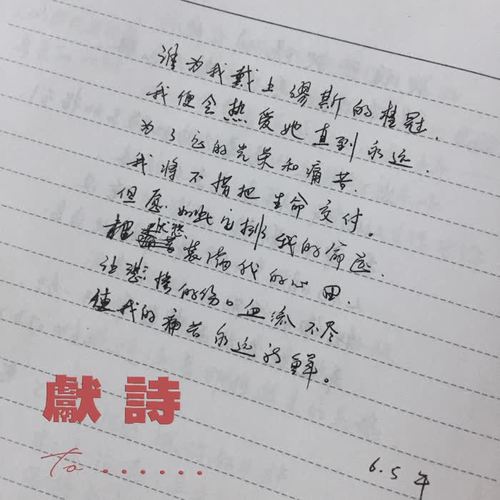 谁为我戴上缪斯的桂冠.
我便会热爱她直到永远.
为了它的光荣和痛苦.
我将不惜把生命交付。
但愿如此安排我的命运.
把苦恋装满我的心田.
让悲情的伤口血流不尽
使我的痛苦永远新鲜。
獻詩
to ......
6.5 午